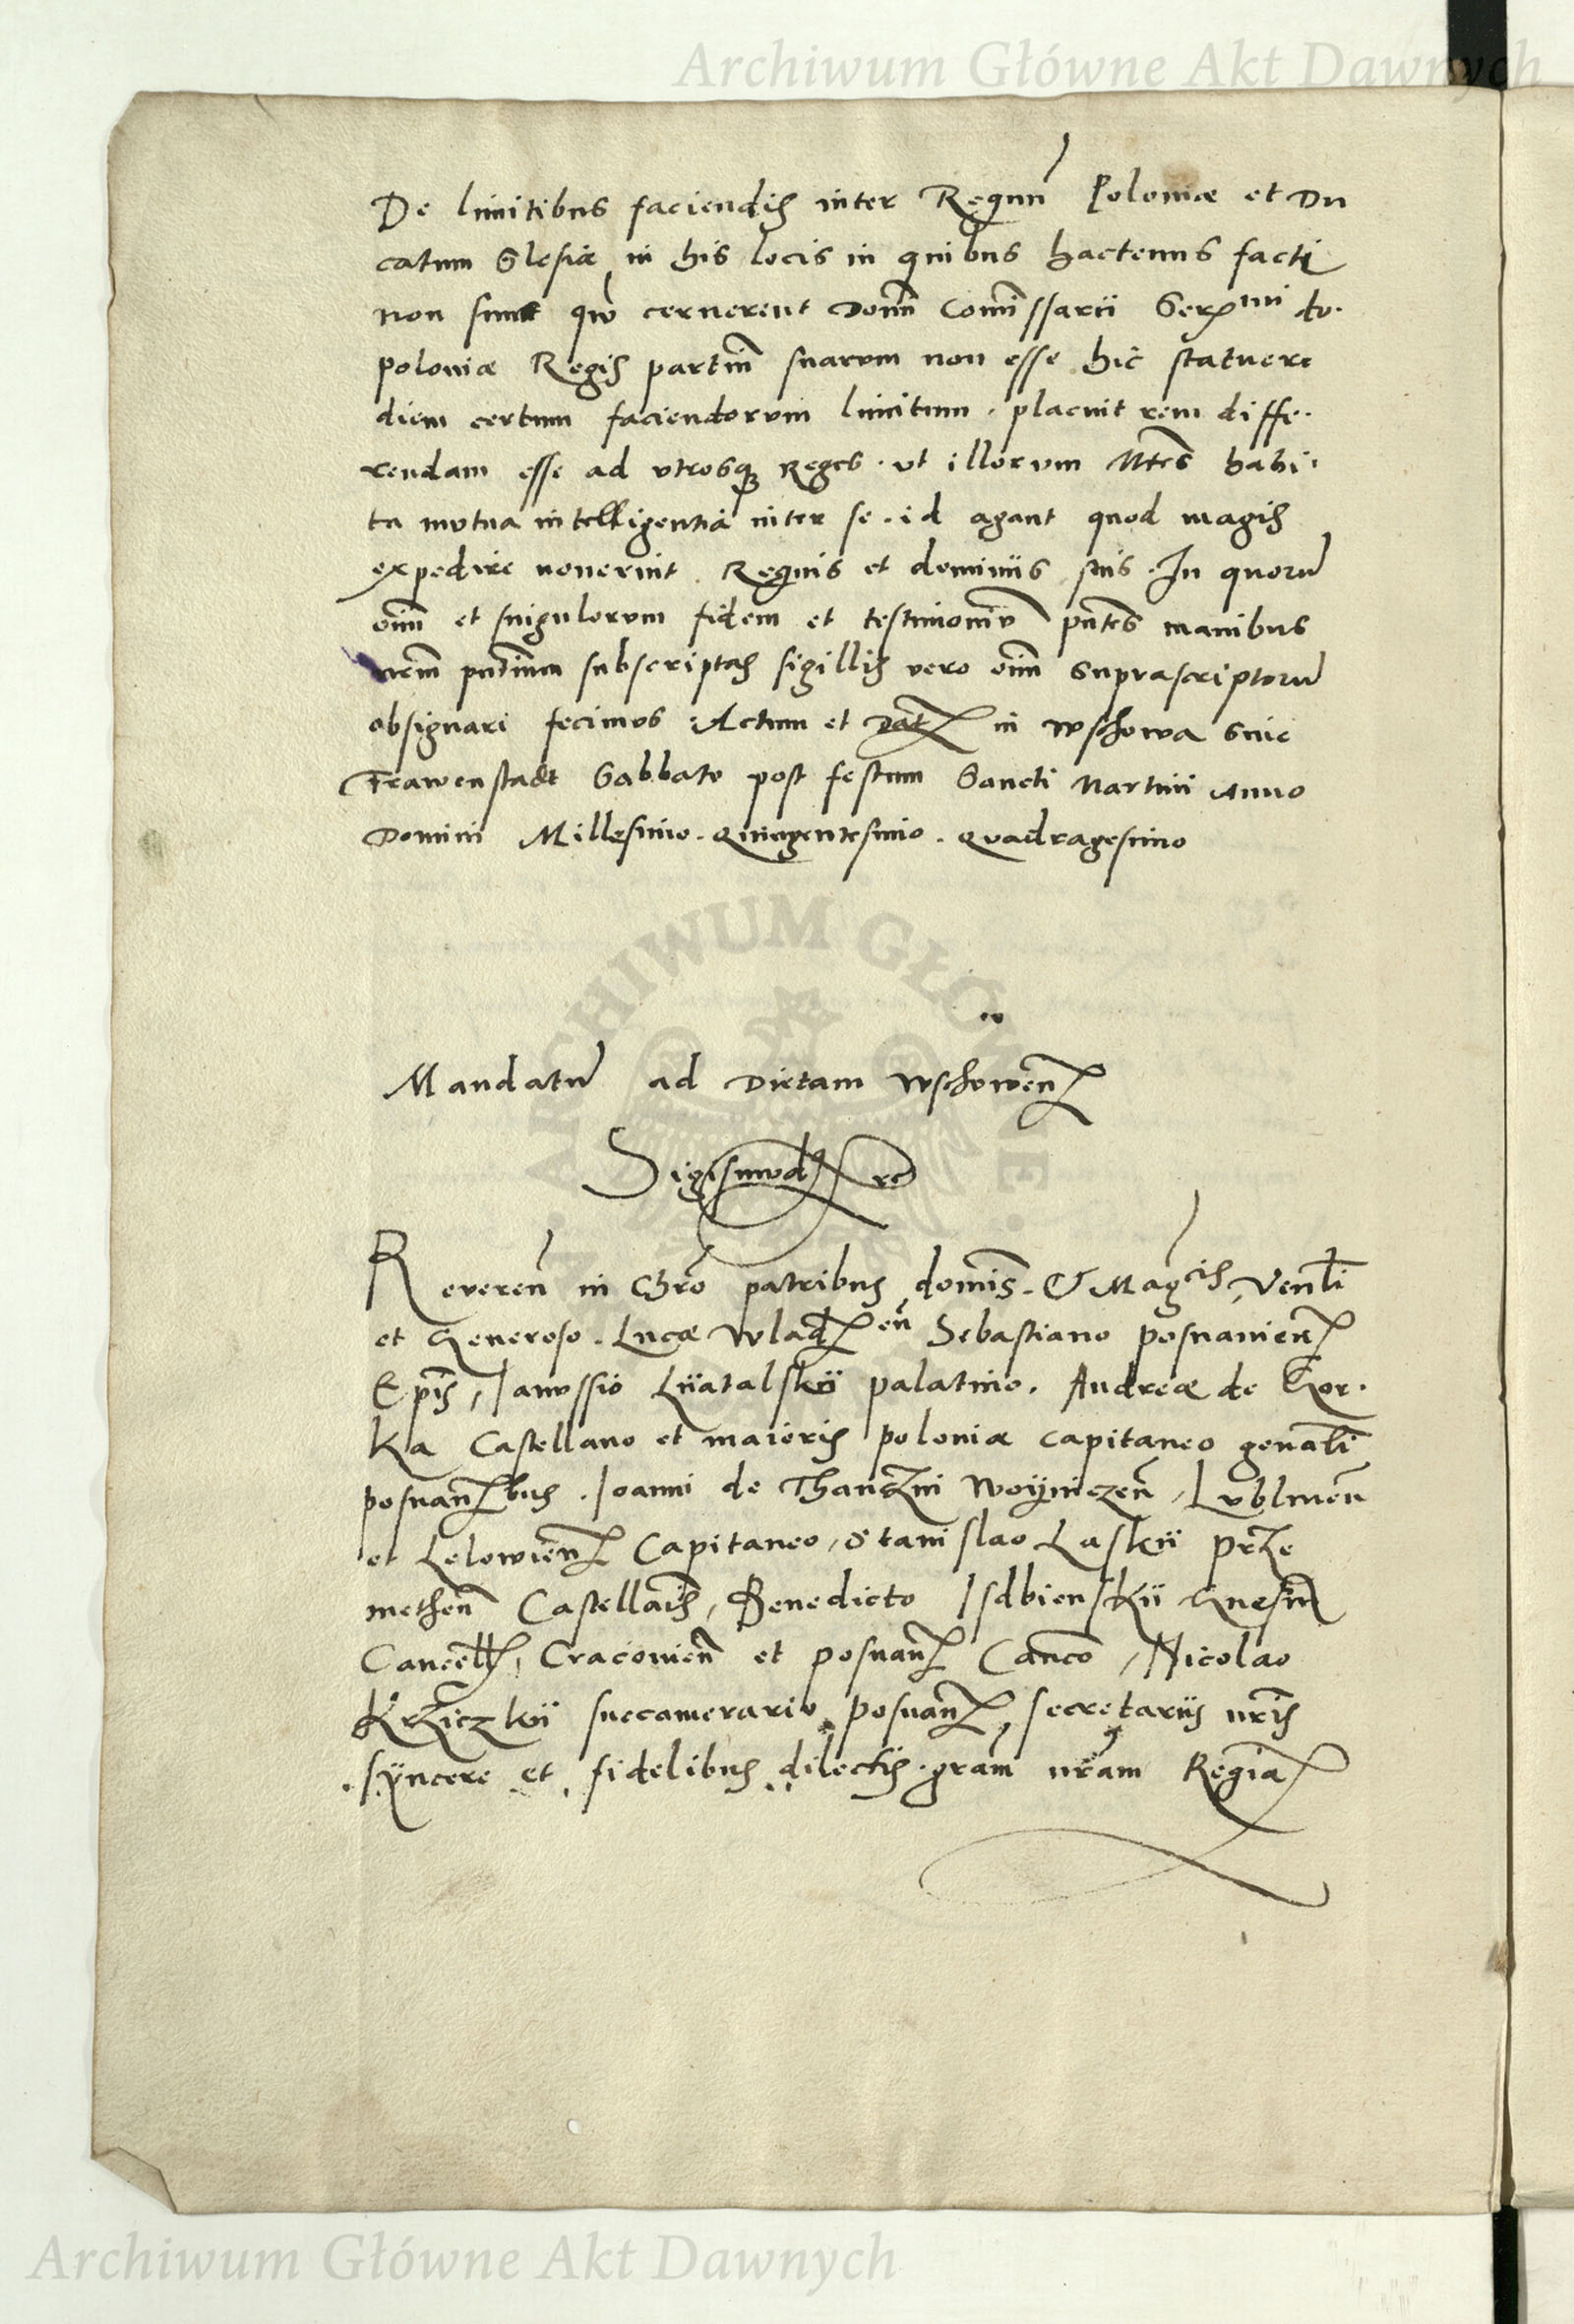 Archiwum Główne Akt Dawnych
De limitibus faciendis inter Regnũ Poloniæ et Du
catum Slesiæ in his locis in quibus hactenus facti
non sunt qũo cernerent Domĩ Comĩssarii Serᵐⁱ do.
poloniæ Regis partiũ suarum non esse hic statuere
diem certum faciendorum limitum . placuit rem diffe.
rendam esse ad vtrosq; Reges . vt illorum Mtes habi.
ta mutua intelligentia inter se . id agant quod magis
expedire noverint . Regnis et dominiis suis . In quorũ
oĩm et singulorum fidem et testimoniũ pñtes manibus
nr̃m subscriptas sigillis vero oĩm suprascriptorũ
obsignari fecimus . Actum et Dat in Wschowa sive
Frawenstadt Sabbato post festum Sancti Martini Anno
Domini Millesimo . Quingentesimo . Quadragesimo
ARCHIWUM GŁÓWNE
Mandatũ ad Dietam Wschowen̄
Sigismũd re
Reveren̄ in Chr̃o patribus domĩs . et Magcis, Ven̄li
et Generoso . Lucæ Wladen̄ Sebastiano posnanien̄
Ep̃is, Ianussio Liiatalskii palatino . Andreæ de Gor.
ka Castellano et maioris poloniæ capitaneo gen̄ali
posnan̄bus . Ioanni de Woÿniczen̄, Lublinen̄
et Lelowien̄ Capitaneo, Stanislao Laskii Prze
methen̄ Castellan̄is, Benedicto Isdbienskii Gnesn̄
Cancell, Cracovien̄ et posnan̄ Can̄co, Nicolao
Krziczkii succamerario posnan̄, secretariis nr̃is
sÿncere et fidelibus dilectis . gram̃ nr̃am Regia
Archiwum Główne Akt Dawnych